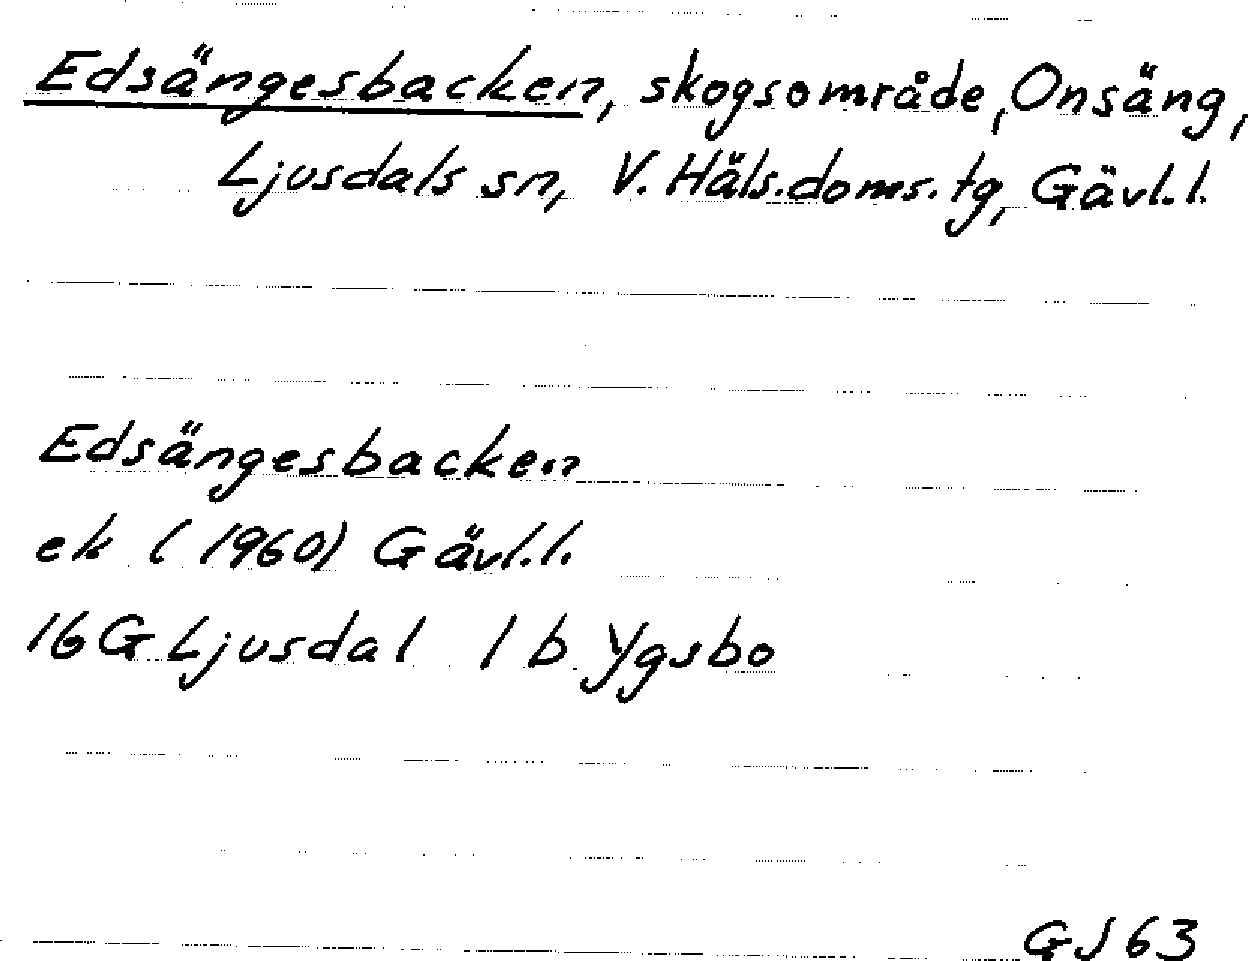 Edsängesbacken, skogsområde, Onsäng,
Ljusdals sn, V. Häls.doms.tg, Gävl.l.
Edsängesbacken
ek (1960) Gävl.l.
16G Ljusdal 1 b Ygsbo
GJ 63